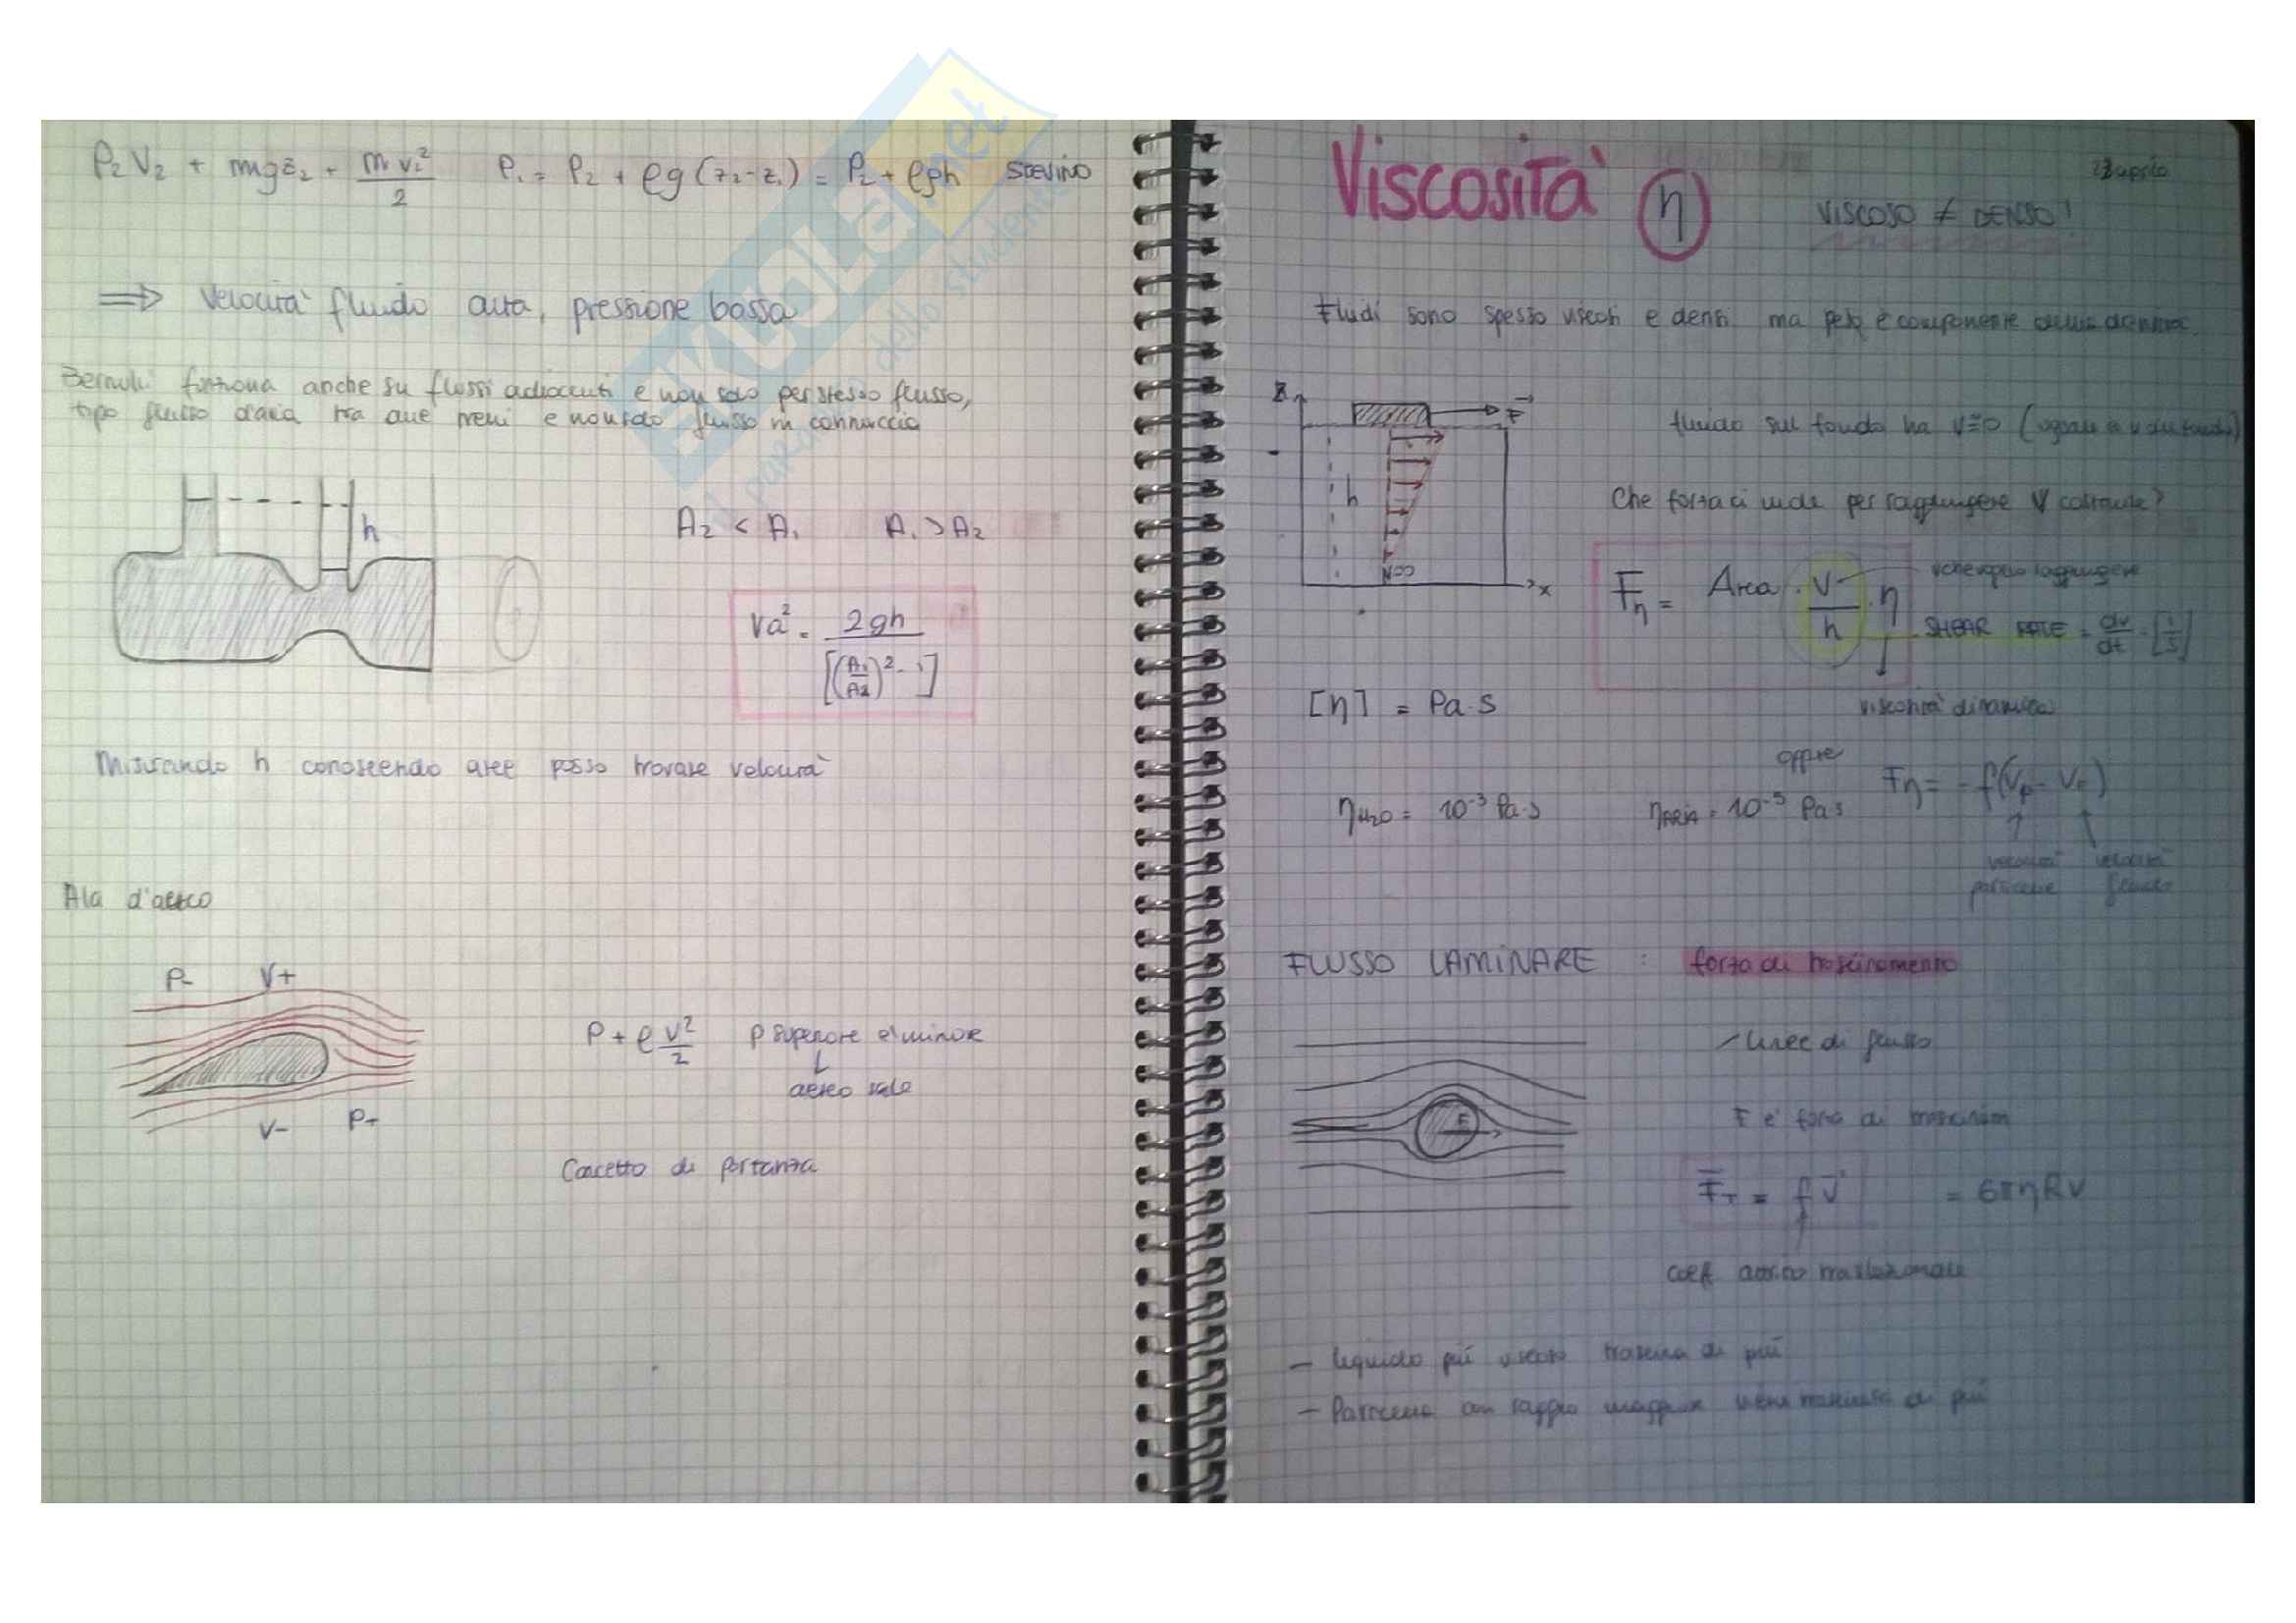 P₂V₂ + mgz₂ + mv₂²/2 P₁ = P₂ + ρg(z₂-z₁) = P₂ + ρgh STEVINO
⇒ Velocità fluido alta, pressione bassa
anche su flussi adiacenti e non solo per stesso flusso,
tipo flusso d'aria tra due treni e non solo flusso in
h
A₂ < A₁ A₁ > A₂
Va² = 2gh / [(A₁/A₂)² - 1]
Misurando h conoscendo aree posso trovare velocità
Ala d'aereo
P- V+
P + ρ v²/2 P superiore è minore
↓
aereo sale
V- P+
Concetto di portanza
SKUOLA.net
il paradiso dello studente
Viscosità η
aprile
VISCOSO ≠ DENSO!
Fluidi sono spesso viscosi e densi ma è componente della
z
F
h
x
fluido sul fondo ha V=0
Che forza ci vuole per raggiungere V costante?
Fη = Area · V/h · η
SHEAR RATE = dv/dt = [1/s]
viscosità dinamica
[η] = Pa·s
ηH₂O = 10⁻³ Pa·s ηARIA = 10⁻⁵ Pa·s
oppure Fη = -f(Vp - VF)
velocità particelle velocità fluido
FLUSSO LAMINARE : forza di trascinamento
linee di flusso
F
F è forza di trascinam
F_T = f v = 6πηRV
coeff attrito traslazionale
- liquido più viscoso trascina di più
- Particella con raggio maggiore viene trascinata di più